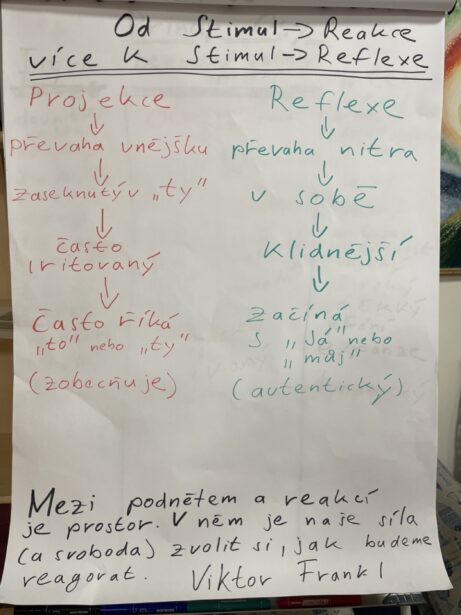 Od Stimul → Reakce
více k Stimul → Reflexe
Projekce
↓
převaha vnějšku
↓
zaseknutý v „ty"
↓
často
iritovaný
↓
Často říká
„to" nebo „ty"
(zobecňuje)
Reflexe
↓
převaha nitra
↓
v sobě
↓
Klidnější
↓
začíná
s „Já" nebo
„můj"
(autentický)
Mezi podnětem a reakcí
je prostor. V něm je naše síla
(a svoboda) zvolit si, jak budeme
reagovat. Viktor Frankl